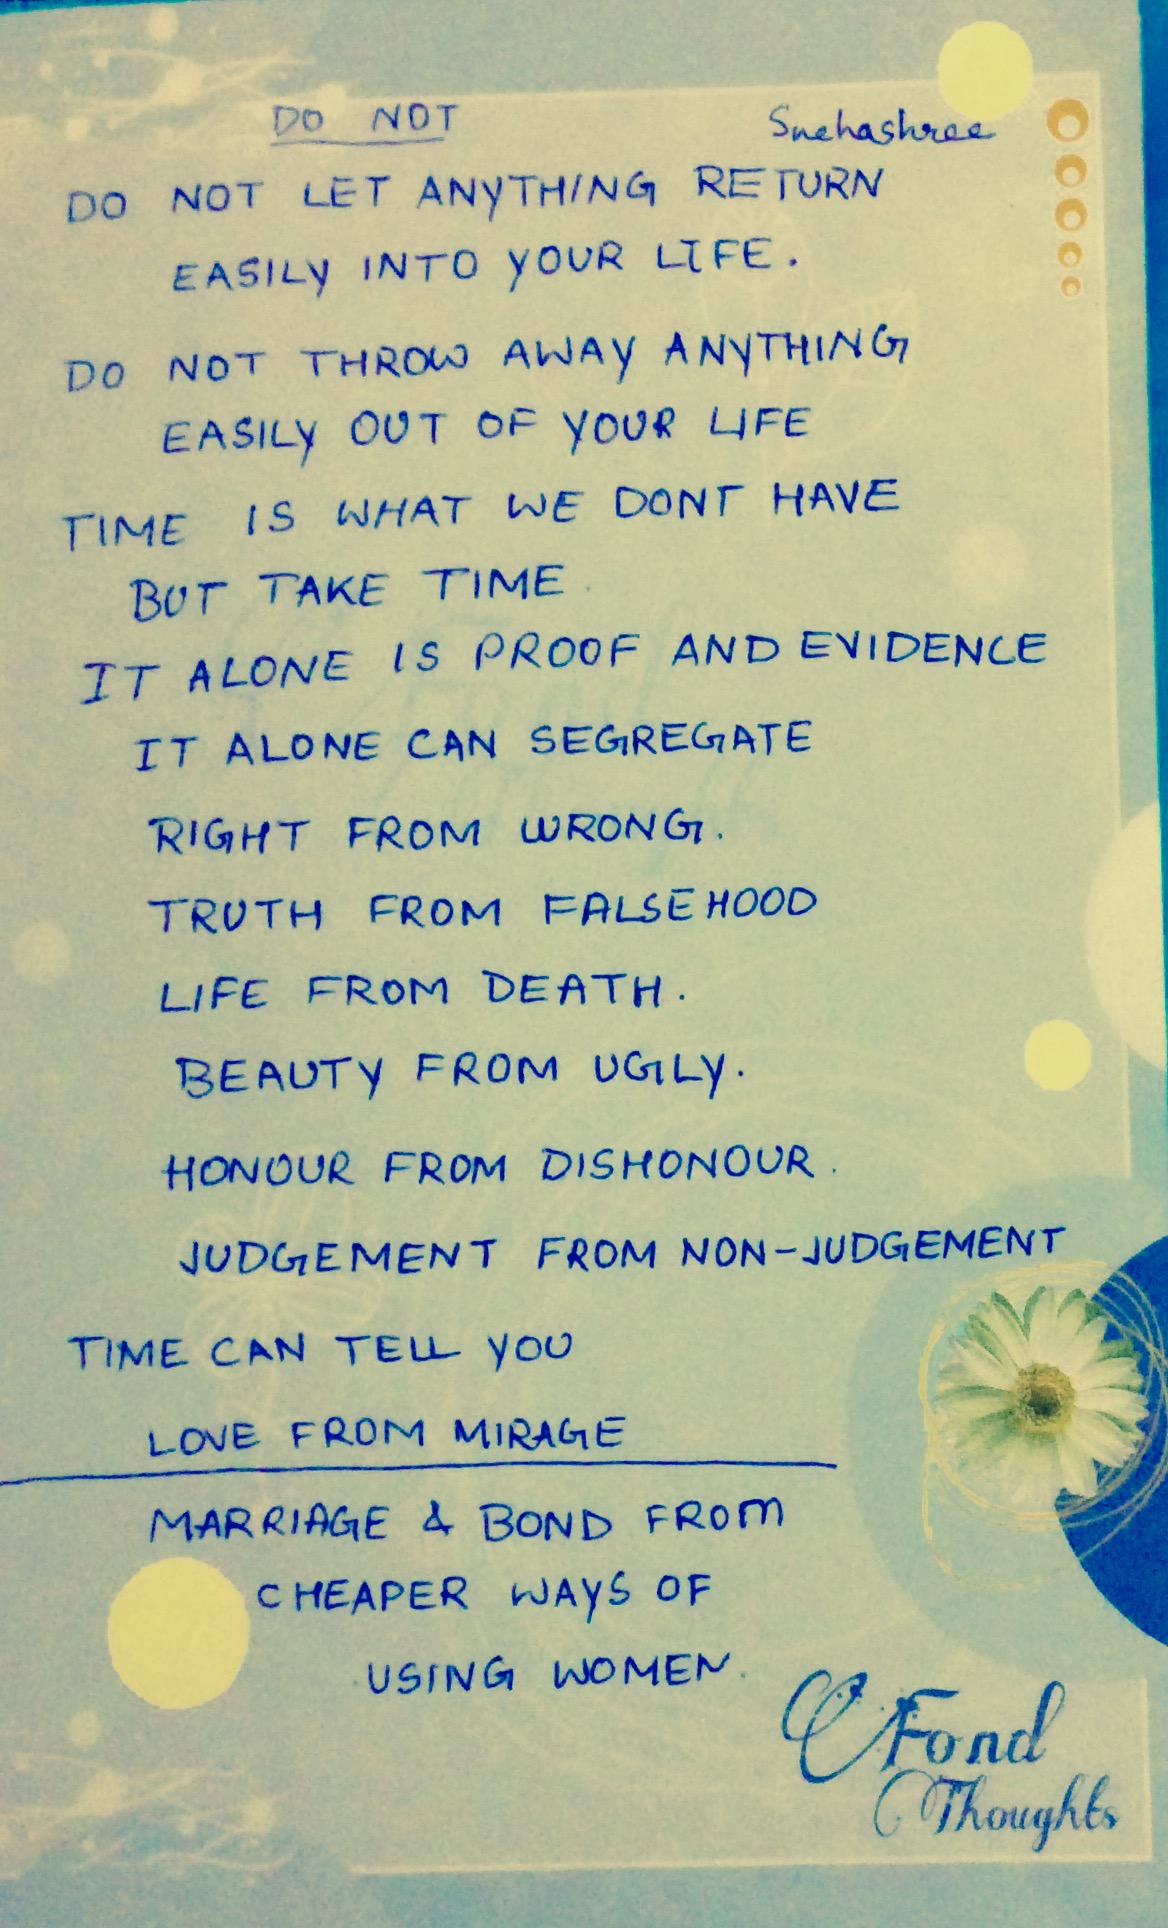 DO NOT
Snehashree
DO NOT LET ANYTHING RETURN
EASILY INTO YOUR LIFE.
DO NOT THROW AWAY ANYTHING
EASILY OUT OF YOUR LIFE
TIME IS WHAT WE DONT HAVE
BUT TAKE TIME
IT ALONE IS PROOF AND EVIDENCE
IT ALONE CAN SEGREGATE
RIGHT FROM WRONG.
TRUTH FROM FALSEHOOD
LIFE FROM DEATH.
BEAUTY FROM UGLY.
HONOUR FROM DISHONOUR.
JUDGEMENT FROM NON-JUDGEMENT
TIME CAN TELL YOU
LOVE FROM MIRAGE
MARRIAGE & BOND FROM
CHEAPER WAYS OF
USING WOMEN.
Fond
Thoughts